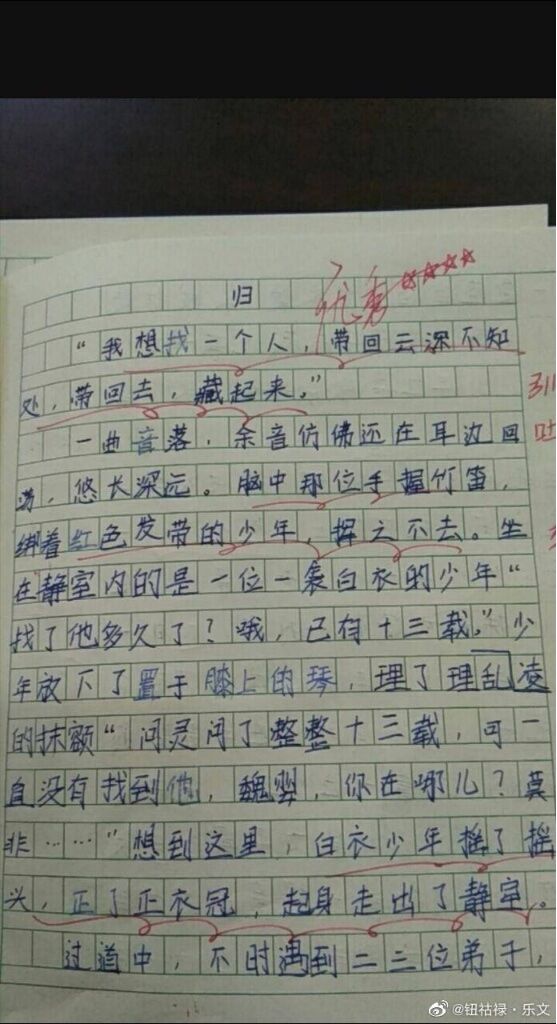 归
优秀☆☆☆☆
“我想找一个人，带回云深不知
处，带回去，藏起来。”
引
一曲音落，余音仿佛还在耳边回
荡，悠长深远。脑中那位手握竹笛，
绑着红色发带的少年，挥之不去。坐
在静室内的是一位一袭白衣的少年“
找了他多久了？哦，已有十三载。”少
年放下了置于膝上的琴，理了理乱凌
的抹额“问灵问了整整十三载，可一
直没有找到他，魏婴，你在哪儿？莫
非……”想到这里，白衣少年摇了摇
头，正了正衣冠，起身走出了静室。
过道中，不时遇到二三位弟子，
@钮祜禄·乐文